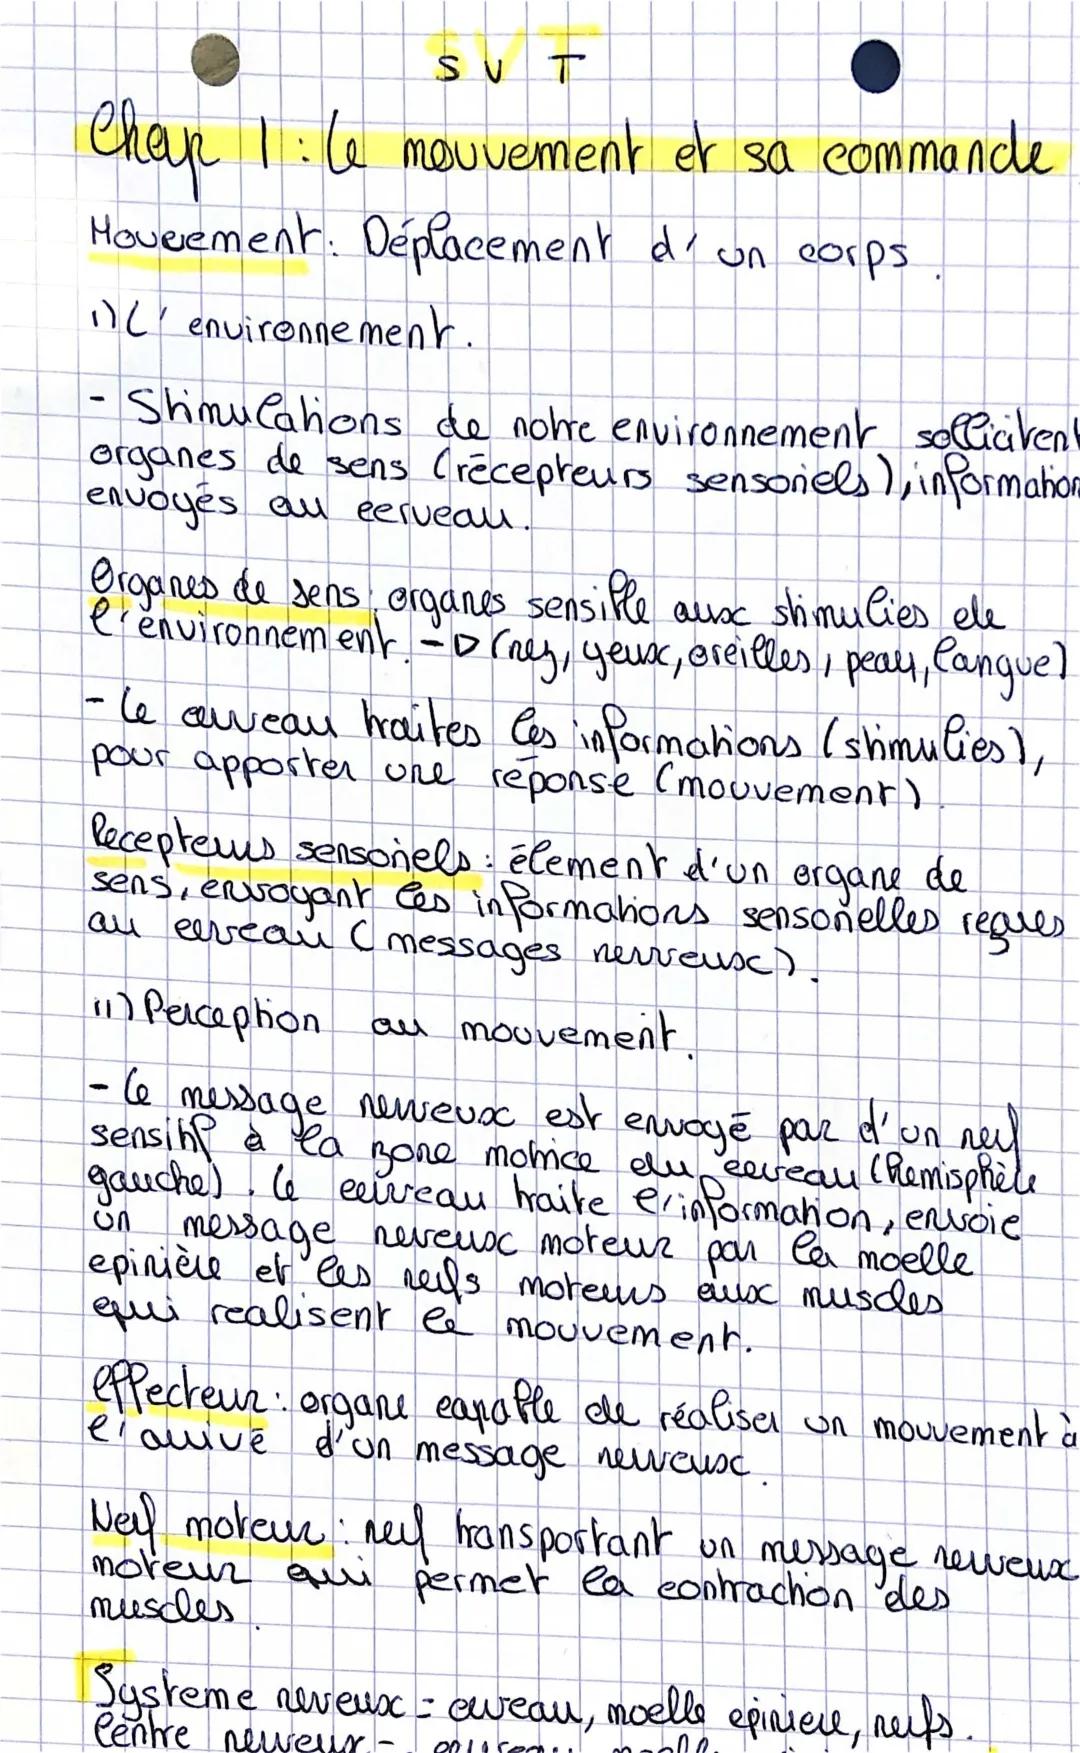 SVT
Chap 1 : le mouvement et sa commande
Mouvement : Déplacement d'un corps.
1) L'environnement.
- Stimulations de notre environnement sollicitent
organes de sens (récepteurs sensoriels), information
envoyés au cerveau.
Organes de sens : organes sensible aux stimulies de
l'environnement. -> (nez, yeux, oreilles, peau, langue)
- le cerveau traites les informations (stimulies),
pour apporter une réponse (mouvement)
Recepteurs sensoriels : élement d'un organe de
sens, envoyant les informations sensorielles reçues
au cerveau (messages nerveux).
11) Perception au mouvement.
- le message nerveux est envoyé par d'un nerf
sensitif à la zone motrice du cerveau (hemisphère
gauche). le cerveau traite l'information, envoie
un message nerveux moteur par la moelle
epinière et les nerfs moteurs aux muscles
qui realisent le mouvement.
effecteur : organe capable de réaliser un mouvement à
l'arrivé d'un message nerveux.
Nerf moteur : nerf transportant un message nerveux
moteur qui permet la contraction des
muscles.
Systeme nerveux = cerveau, moelle epiniere, nerfs.
Centre nerveux =